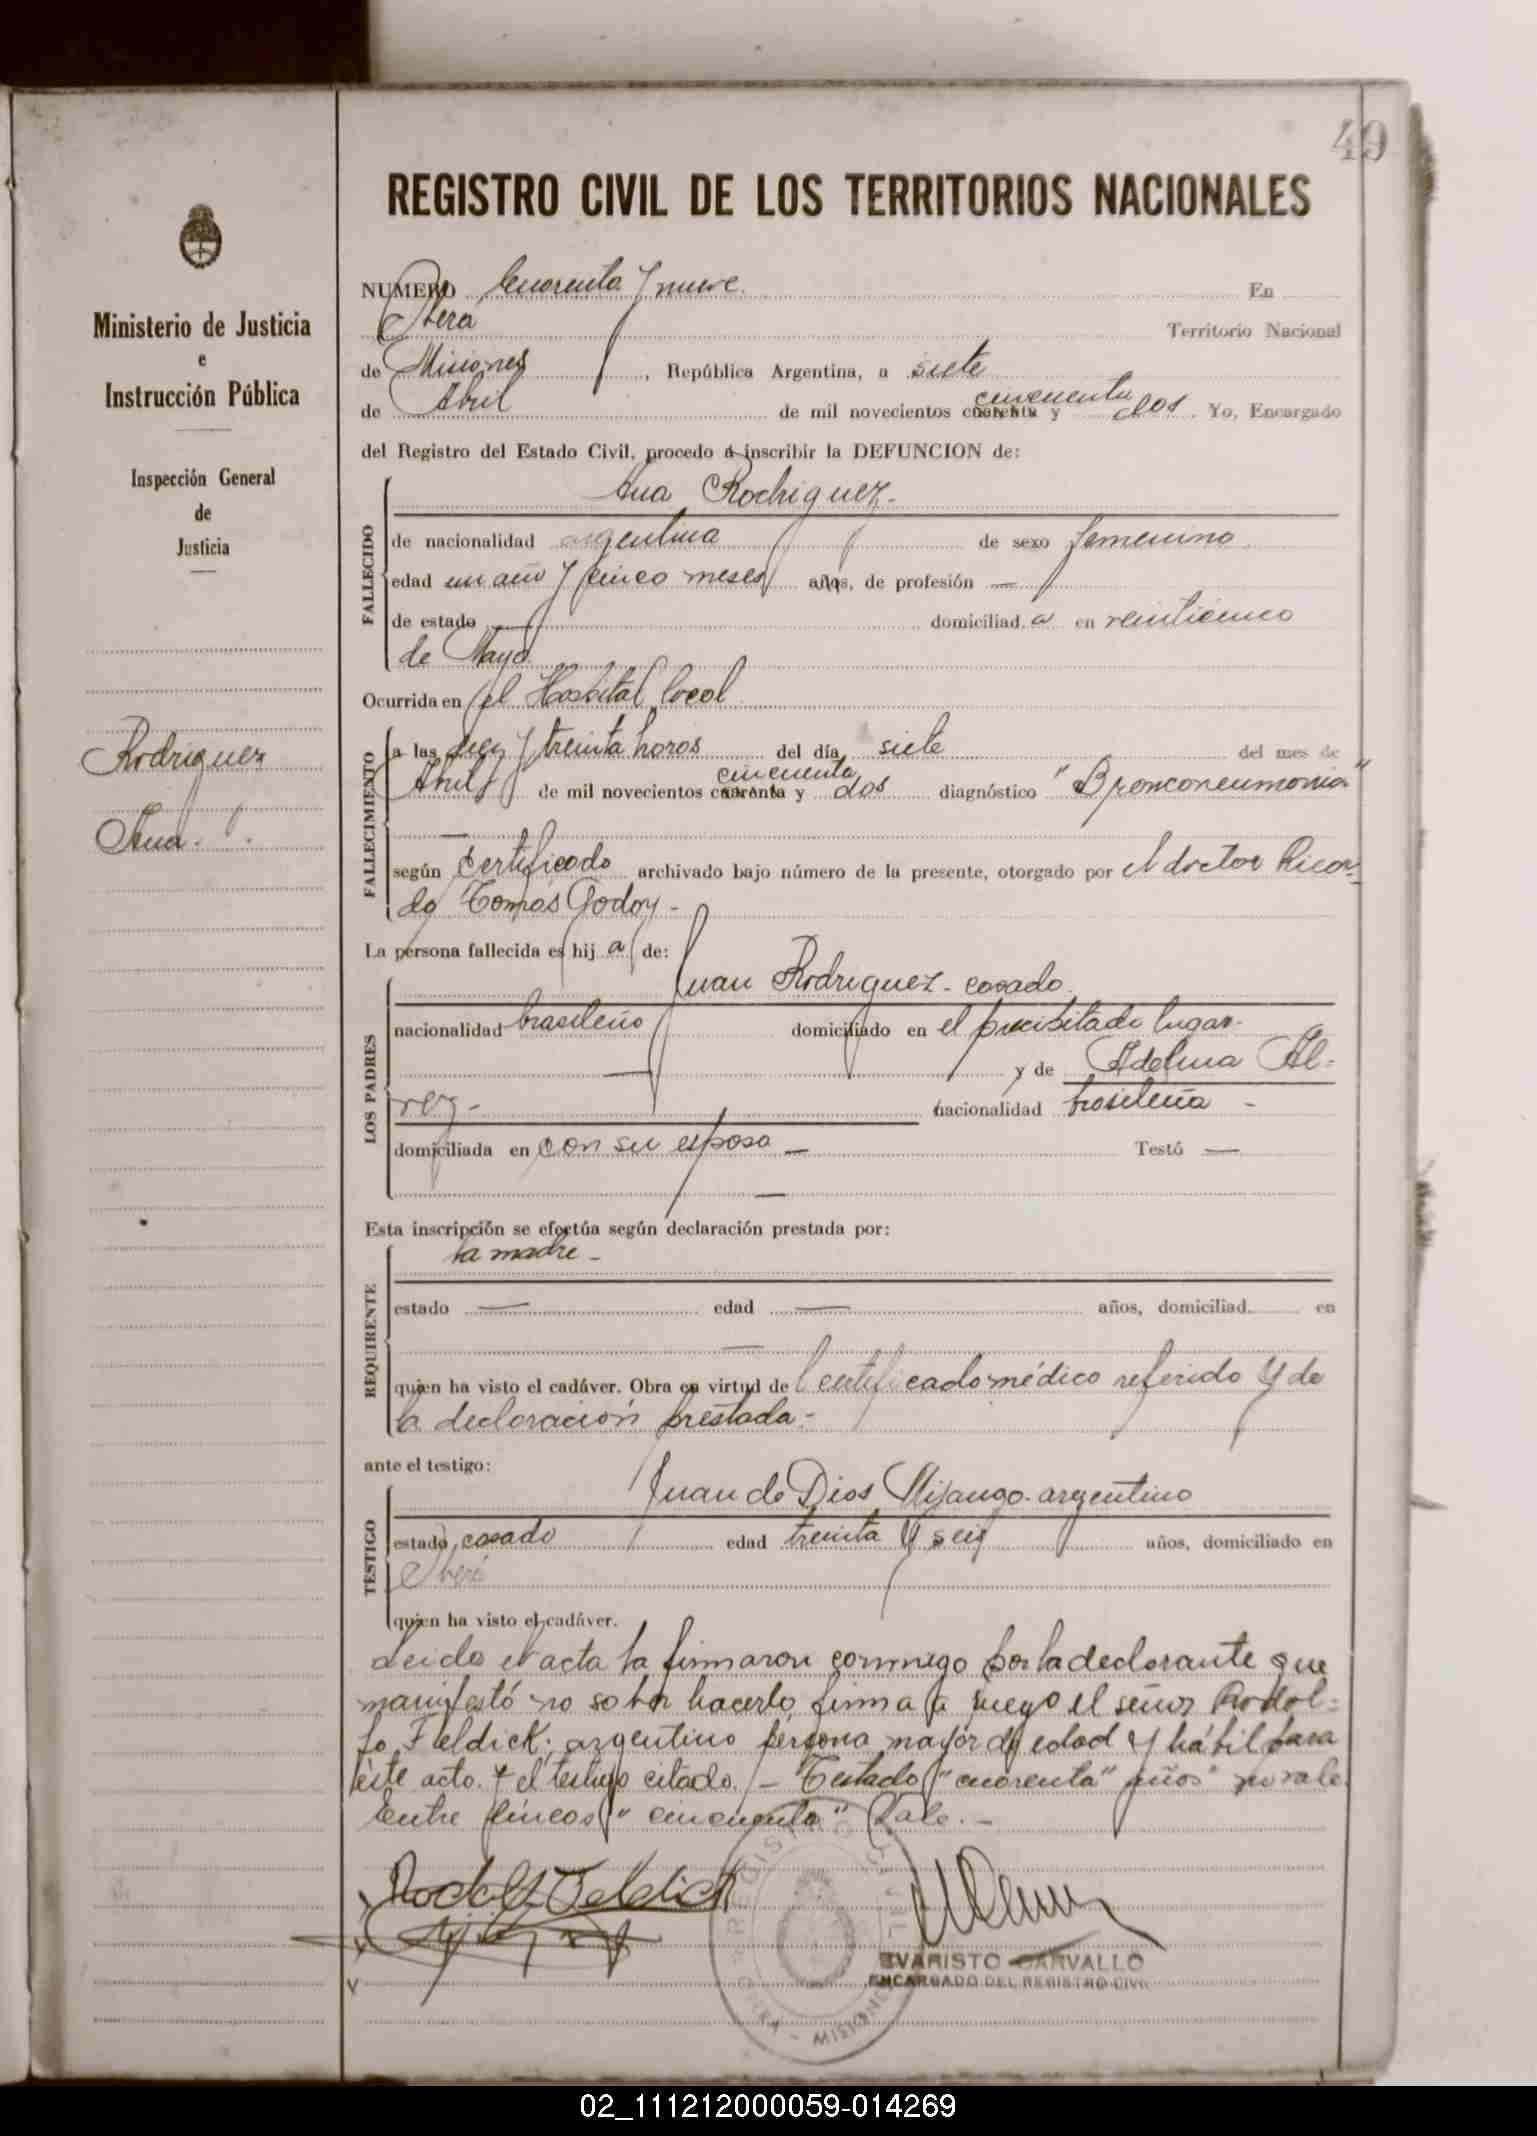 49
REGISTRO CIVIL DE LOS TERRITORIOS NACIONALES
Ministerio de Justicia
e
Instrucción Pública
Inspección General
de
Justicia
Rodriguez
Ana.
NUMERO Cuarenta y nueve. En
Oberá Territorio Nacional
de Misiones, República Argentina, a siete
de Abril de mil novecientos cuarenta cincuenta y dos. Yo, Encargado
del Registro del Estado Civil, procedo a inscribir la DEFUNCION de:
Ana Rodriguez-
FALLECIDO
de nacionalidad argentina de sexo femenino
edad un año y cinco meses años, de profesión —
de estado — domiciliad a en veinticinco
de Mayo
Ocurrida en el Hospital local
FALLECIMIENTO
a las diez y treinta horas del día siete del mes de
Abril de mil novecientos cuarenta cincuenta y dos diagnóstico "Bronconeumonia"
—
según certificado archivado bajo número de la presente, otorgado por el doctor Ricar-
do Tomás Godoy-
La persona fallecida es hij a de:
Juan Rodriguez- casado
LOS PADRES
nacionalidad brasileño domiciliado en el precitado lugar-
— y de Adelina Al-
vez- nacionalidad brasileña -
domiciliada en con su esposo — Testó —
—
Esta inscripción se efectúa según declaración prestada por:
la madre-
REQUIRENTE
estado — edad — años, domiciliad en
—
quien ha visto el cadáver. Obra en virtud de l certificado médico referido y de
la declaración prestada-
ante el testigo:
Juan de Dios argentino
TESTIGO
estado casado edad treinta y seis años, domiciliado en
Oberá
quien ha visto el cadáver.
Leida el acta la firmaron conmigo por la declarante que
manifestó no saber hacerlo firma a ruego el señor Rodol-
fo Feldick, argentino persona mayor de edad y hábil para
este acto. y el testigo citado. — Testado "cuarenta" "años" no vale.
Entre líneas "cincuenta" Vale.-
Rodolfo Feldick
REGISTRO CIVIL
OBERA - MISIONES
EVARISTO CARVALLO
ENCARGADO DEL REGISTRO CIVIL
02_111212000059-014269